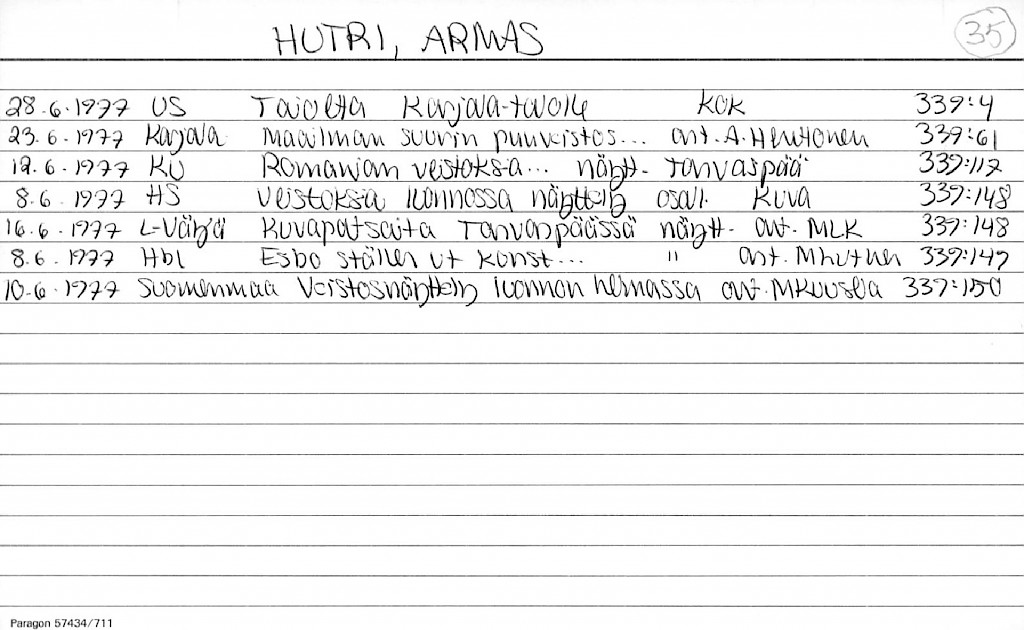 HUTRI, ARMAS 35
28.6.1977 US Taiolta Karjala-talolle kok 339:4
23.6.1977 Karjala Maailman suurin puuveistos... ant. A. 339:61
12.6.1977 KU Romanian veistoksia... näytt. Tarvaspää 339:117
8.6.1977 HS Veistoksia luonnossa näyttely osall. kuva 339:148
16.6.1977 L-Väylä Kuvapatsaita Tarvaspäässä näytt. ant. MLK 339:148
8.6.1977 Hbl Esbo ställer ut konst... " ant. 339:149
10.6.1977 Suomenmaa Veistosnäyttely luonnon helmassa ant. 339:150
Paragon 57434/711